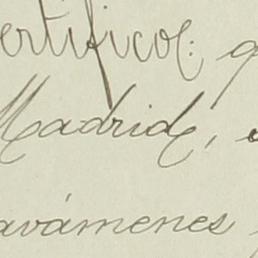 ertifico: q
Madrid,
avámenes